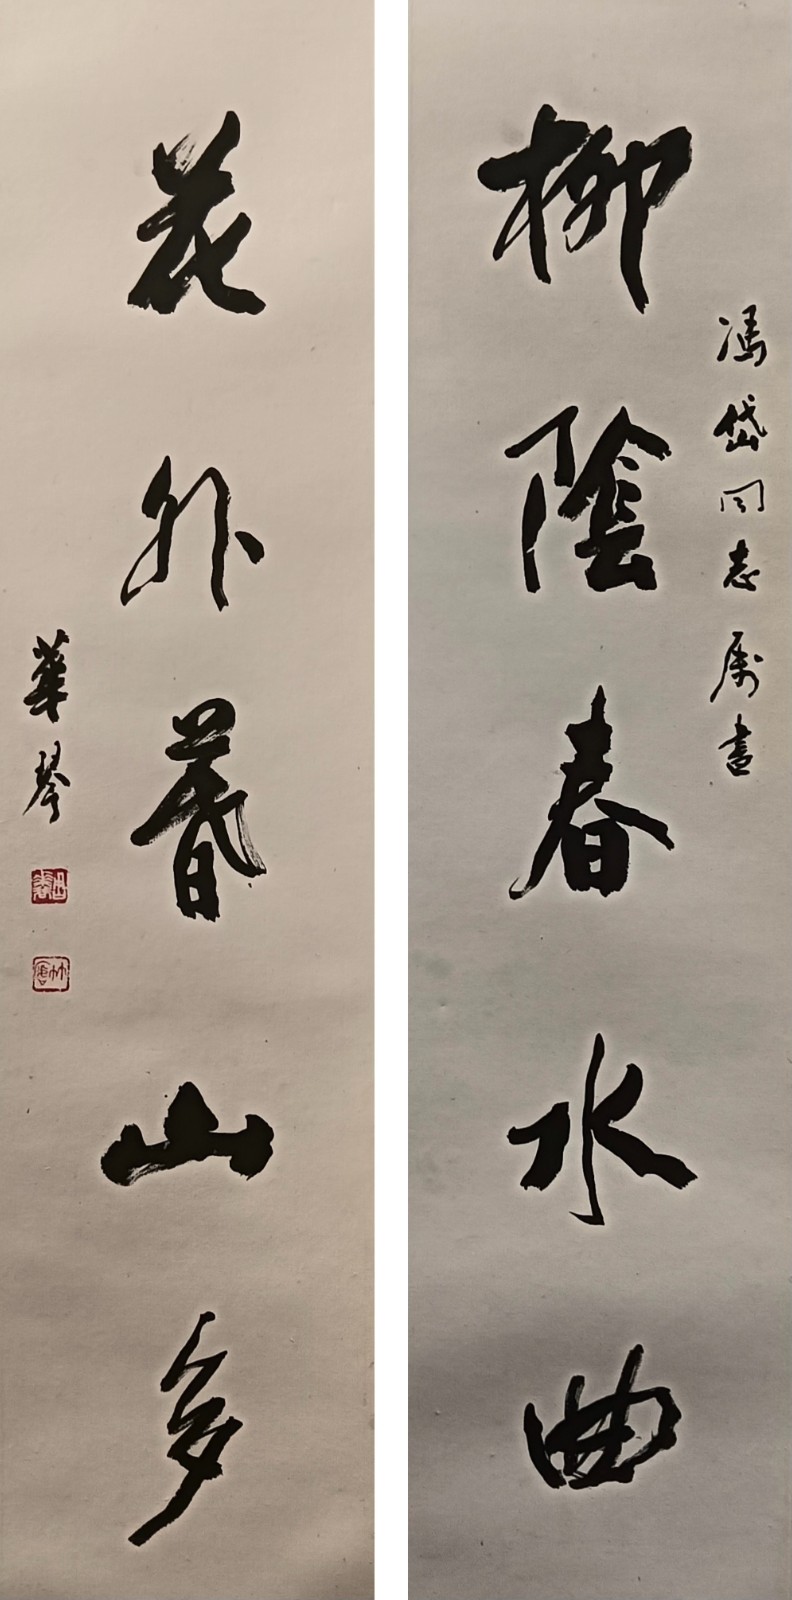 柳陰春水曲
馮岱同志属書
花外暮山多
華琴